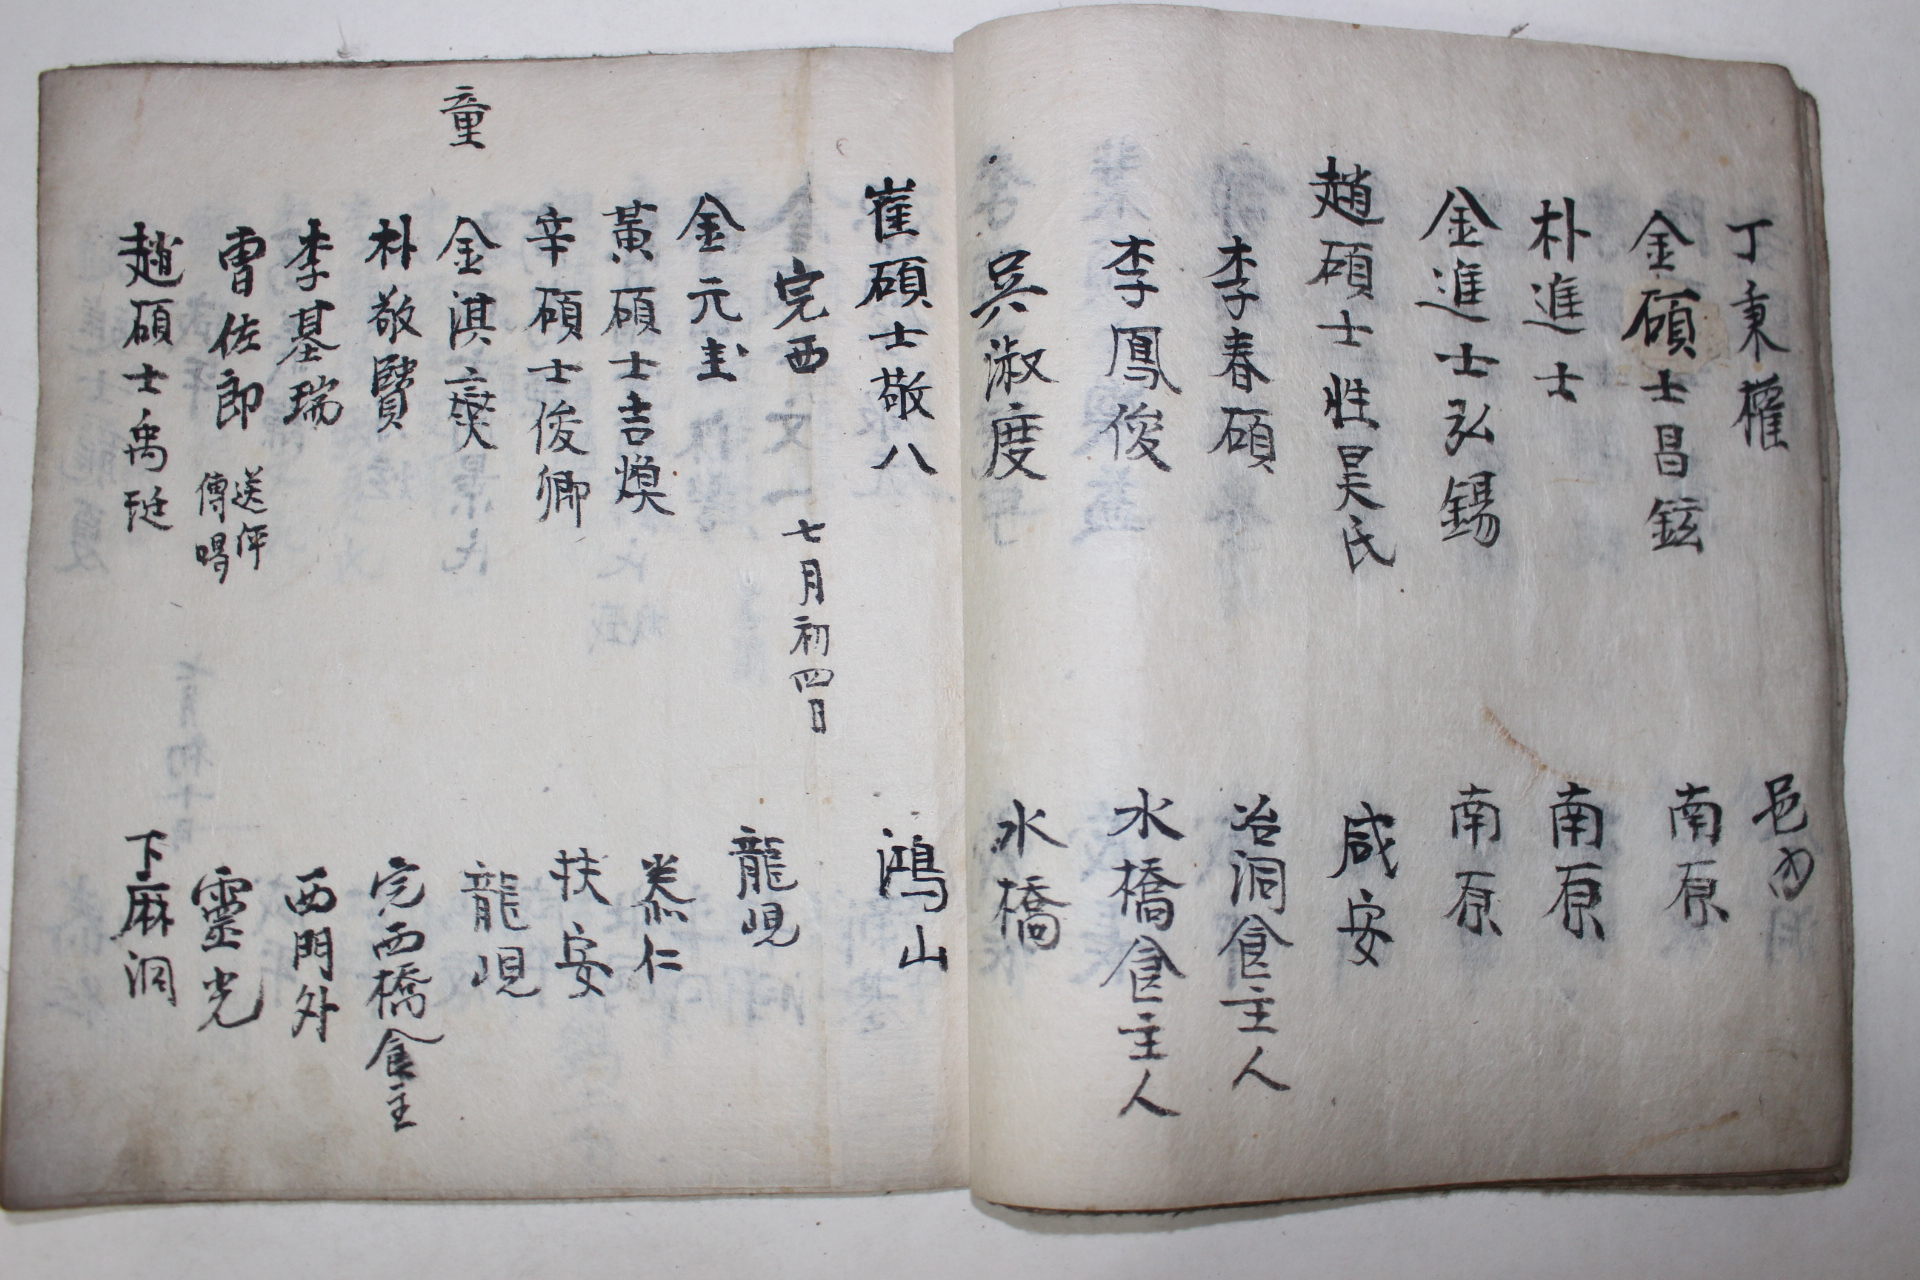 丁秉權 邑內
金碩士昌鉉 南原
朴進士 南原
金進士弘錫 南原
趙碩士性昊氏 咸安
李春碩 冶洞食主人
李鳳俊 水橋食主人
吳淑度 水橋
崔碩士敬八 鴻山
完西 七月初四日
金元圭 龍峴
黃碩士吉煥 泰仁
辛碩士俊卿 扶安
童 金淇奭 龍峴
朴敬賢 完西橋食主
李基瑞 西門外
曺佐郎 送伻傳喝 靈光
趙碩士禹珽 下麻洞